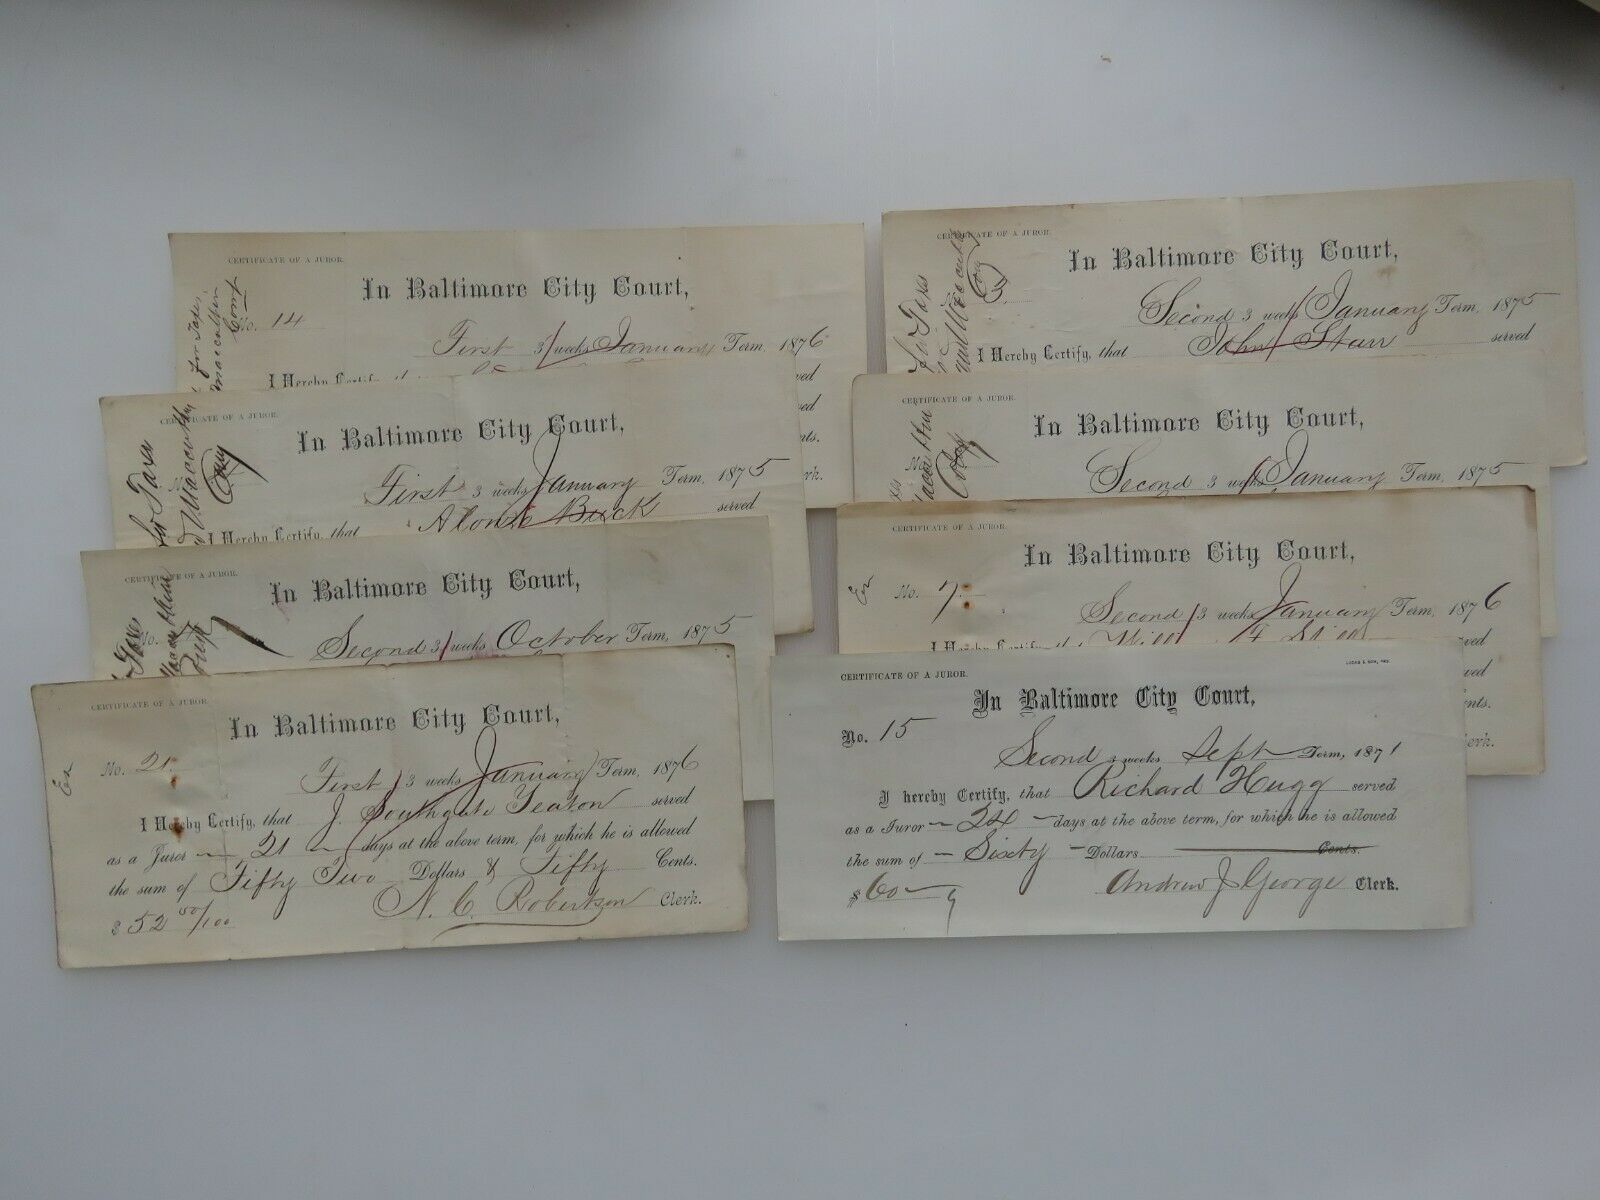 CERTIFICATE OF A JUROR.
In Baltimore City Court,
for Taxes,
Court
No. 14
First 3 weeks January Term, 1876
I Hereby Certify
CERTIFICATE OF A JUROR.
In Baltimore City Court,
for Taxes
First 3 weeks January Term, 1875
I Hereby Certify, that Alonzo Buck served
CERTIFICATE OF A JUROR.
In Baltimore City Court,
No.
Second 3 weeks October Term, 1875
CERTIFICATE OF A JUROR.
In Baltimore City Court,
No. 21
First 3 weeks January Term, 1876
I Hereby Certify, that J. Southgate Yeaton served
as a Juror 21 days at the above term, for which he is allowed
the sum of Fifty Two Dollars & Fifty Cents.
$ 52 50/100 N. C. Robertson Clerk.
CERTIFICATE OF A JUROR.
In Baltimore City Court,
Second 3 weeks January Term, 1875
I Hereby Certify, that John Starr served
CERTIFICATE OF A JUROR.
In Baltimore City Court,
No.
Second 3 weeks January Term, 1875
CERTIFICATE OF A JUROR.
In Baltimore City Court,
No. 7
Second 3 weeks January Term, 1876
CERTIFICATE OF A JUROR.
In Baltimore City Court,
No. 15
Second 3 weeks Sept Term, 1871
I hereby Certify, that Richard Hugg served
as a Juror 24 days at the above term, for which he is allowed
the sum of Sixty Dollars Cents.
$ 60 Andrew J George Clerk.